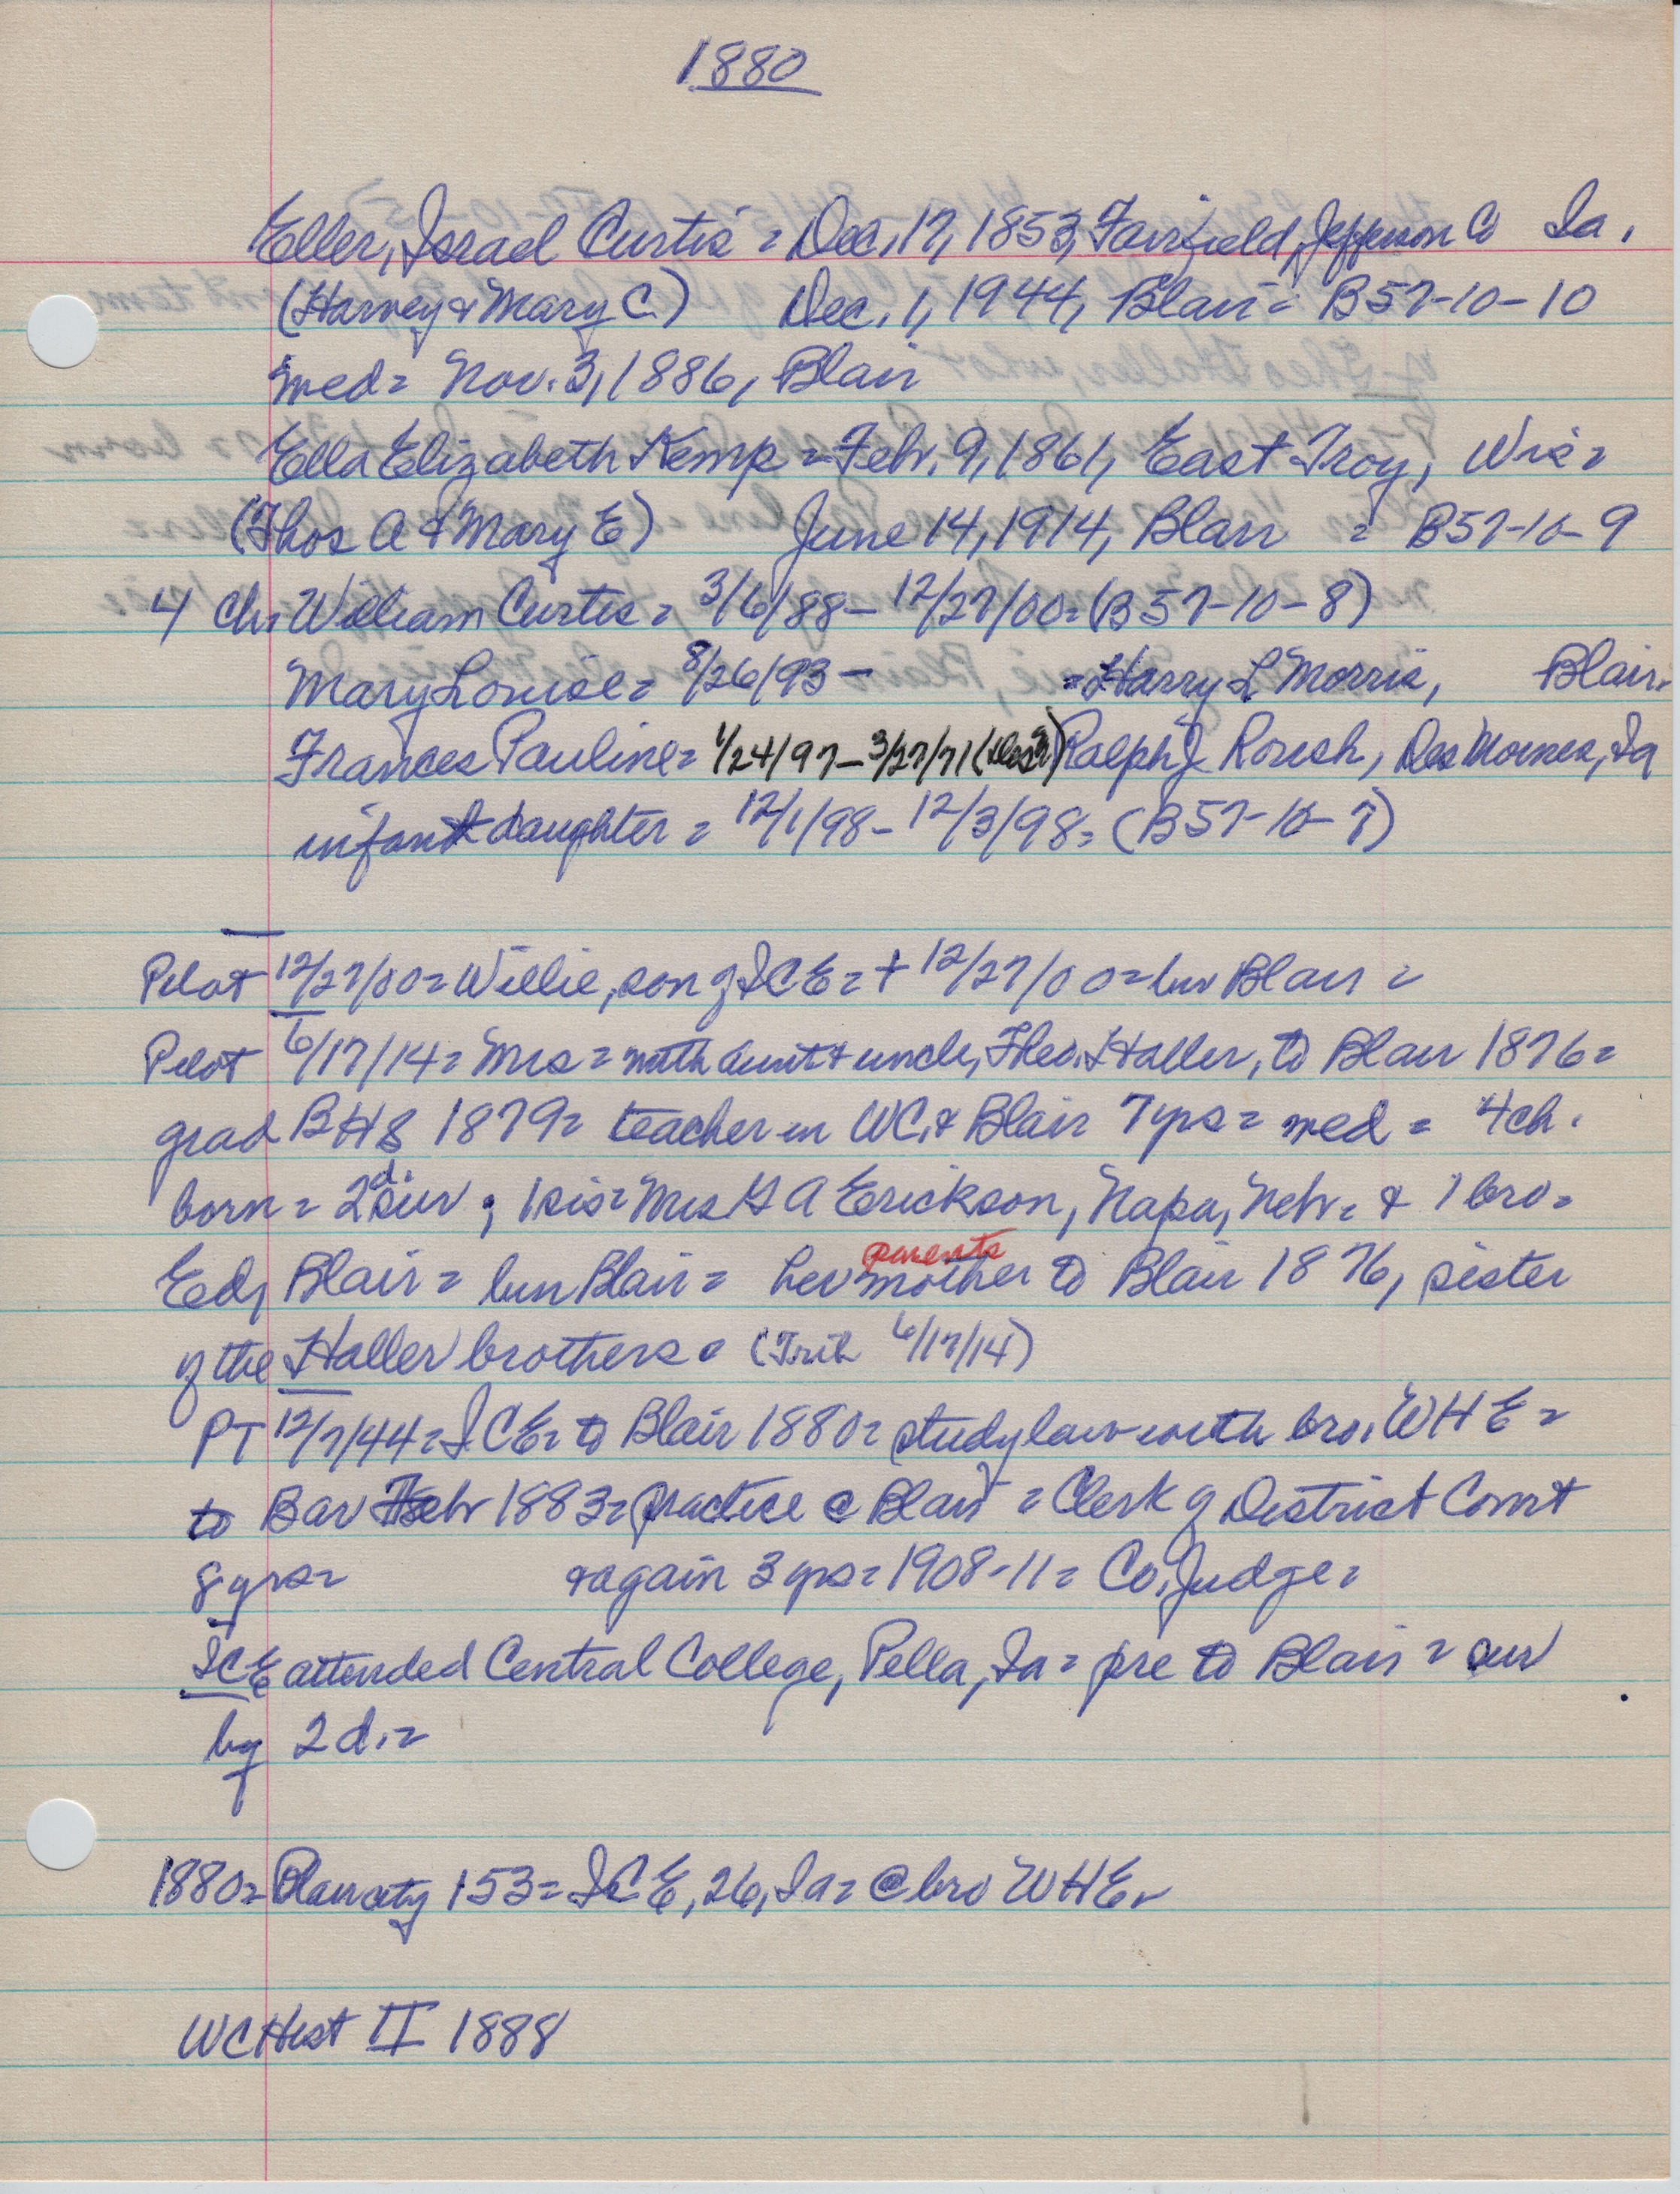 1880
Eller, Israel Curtis = Dec. 17, 1853, Fairfield, Jefferson Co Ia.
(Harvey & Mary C.) Dec. 1, 1944, Blair = B57-10-10
med = Nov. 3, 1886, Blair
Ella Elizabeth Kemp = Febr. 9, 1861, East Troy, Wis =
(Thos A & Mary E) June 14, 1914, Blair = B57-10-9
4 ch: William Curtis = 3/6/88 - 12/27/00 = (B57-10-8)
Mary Louise = 8/26/93 - = Harry L Morris, Blair.
Frances Pauline = 1/24/97 - 3/27/71 Ralph J Rorish, Des Moines, Ia
infant daughter = 12/1/98 - 12/3/98 = (B57-10-7)
Pilot 12/27/00 = Willie, son of ICE = + 12/27/00 = bur Blair =
Pilot 6/17/14 = Mrs = with aunt & uncle, Theo. Haller, to Blair 1876 =
grad BHS 1879 = teacher in WC & Blair 7 yrs = med = 4 ch.
born = 2 d. surv; 1 sis = Mrs G A Erickson, Napa, Nebr. & 1 bro =
Ed, Blair = bur Blair = her mother parents to Blair 1876, sister
of the Haller brothers = (Trib 6/17/14)
PT 12/7/44 = ICE = to Blair 1880 = study law with bro. WHE =
to Bar Febr 1883 = practice @ Blair = Clerk of District Court
8 yrs = & again 3 yrs = 1908-11 = Co. Judge =
ICE attended Central College, Pella, Ia = pre to Blair = sur
by 2 d. =
1880 = Blair city 153 = ICE, 26, Ia = @ bro WHE
WCHist II 1888